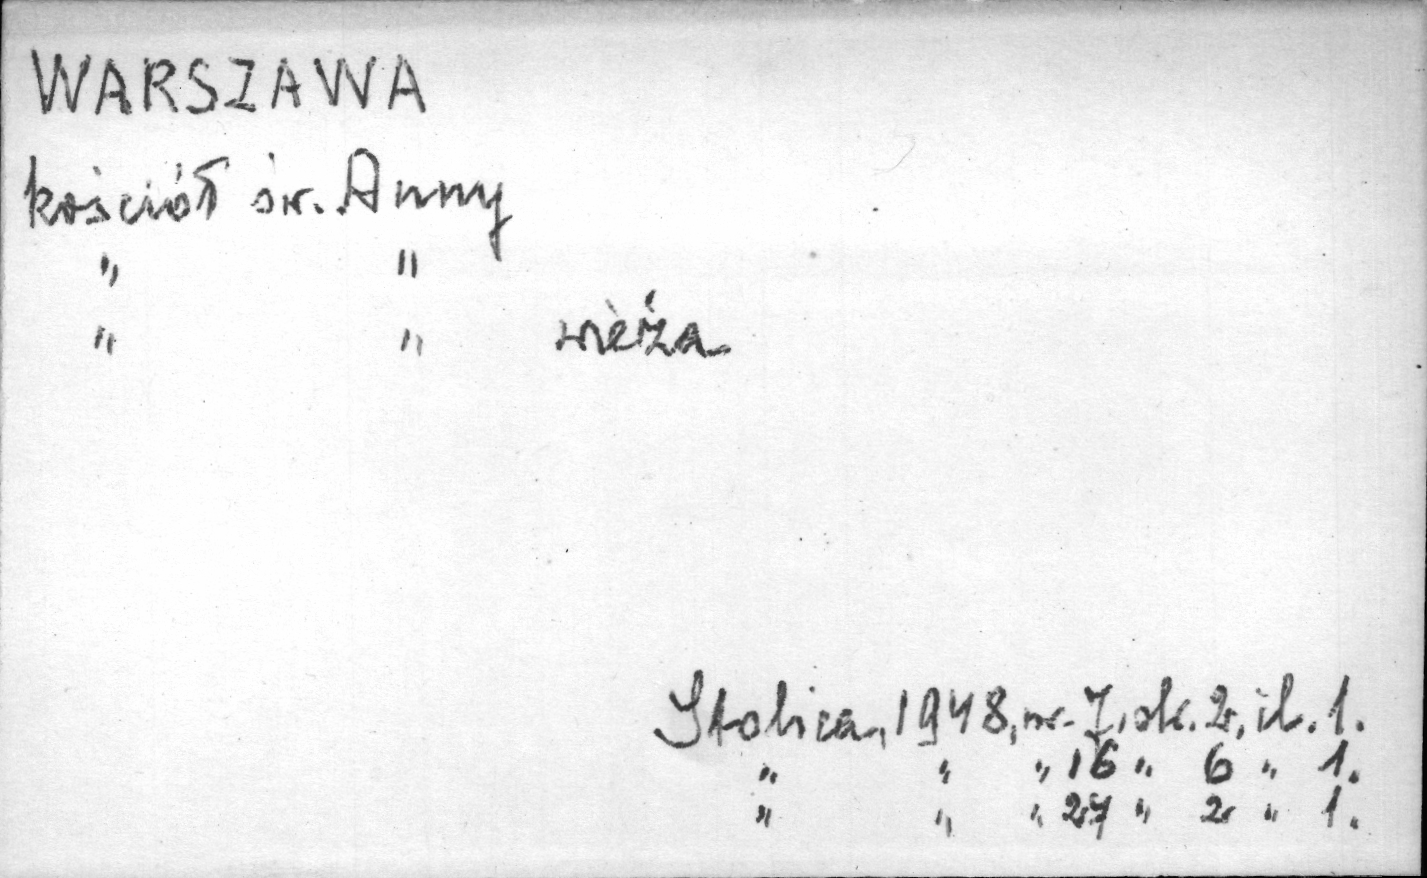 WARSZAWA
kościół św. Anny
" "
" " wieża
Stolica, 1948, nr. 7, ok. 2, il. 1.
" " " 16 " 6 " 1.
" " " 27 " 2 " 1.